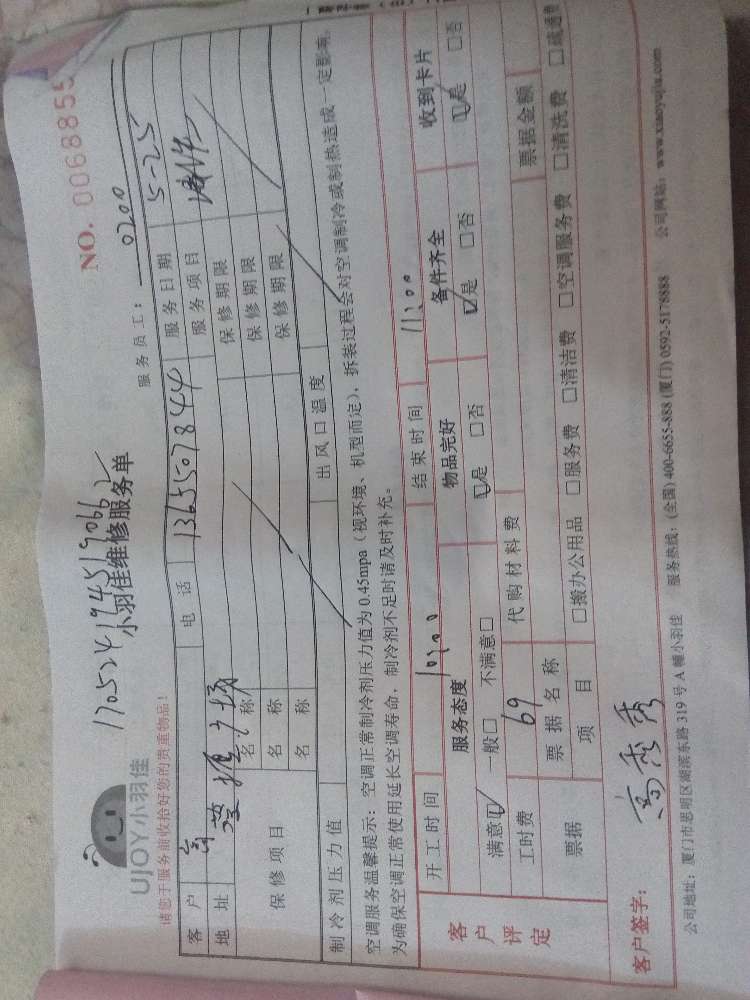 NO. 0068855
170524194519066
UJOY小羽佳
小羽佳维修服务单
服务员工： 0200
请您于服务前收拾好您的贵重物品！
客户 高 电话 1365507844 服务日期 5-25
地址 服务项目
保修项目 名称 保修期限
名称 保修期限
名称 保修期限
制冷剂压力值 出风口温度
空调服务温馨提示：空调正常制冷剂压力值为0.45mpa（视环境、机型而定），拆装过程会对空调制冷或制热造成一定影响。
为确保空调正常使用延长空调寿命，制冷剂不足时请及时补充。
客户评定 开工时间 10:00 结束时间 11:00
服务态度 物品完好 备件齐全 收到卡片
满意☑ 一般□ 不满意□ ☑是 □否 ☑是 □否 ☑是 □否
工时费 69 代购材料费
票据 票据名称 票据金额
项目 □搬办公用品 □服务费 □清洁费 □空调服务费 □清洗费 □疏通费
客户签字： 高秀秀
公司地址：厦门市思明区湖滨东路319号A幢小羽佳 服务热线：(全国) 400-6655-888 (厦门) 0592-5178888 公司网站：www.xiaoyujia.com